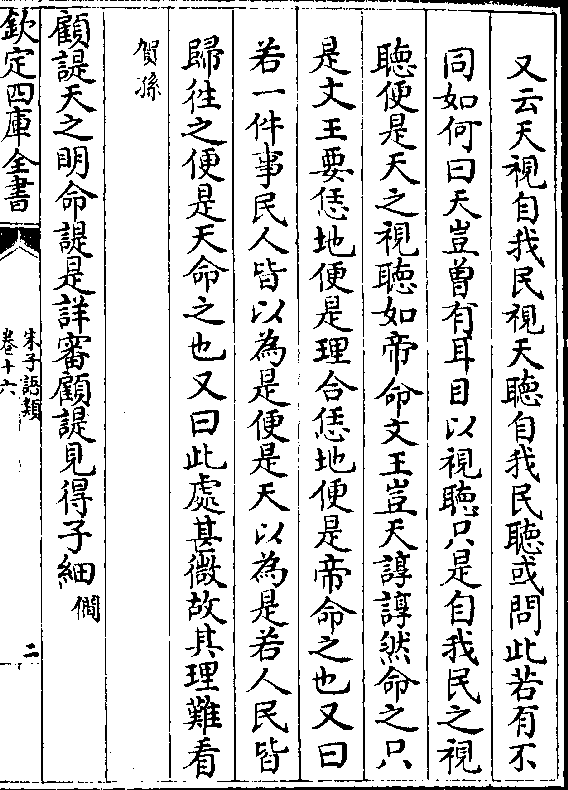 又云天視自我民視天聽自我民聽或問此若有不
同如何曰天豈曽有耳目以視聽只是自我民之視
聽便是天之視聽如帝命文王豈天諄諄然命之只
是文王要恁地便是理合恁地便是帝命之也又曰
若一件事民人皆以為是便是天以為是若人民皆
歸往之便是天命之也又曰此處甚微故其理難看
賀孫
顧諟天之明命諟是詳審顧諟見得子細 僩
欽定四庫全書
朱子語類
卷十六
二